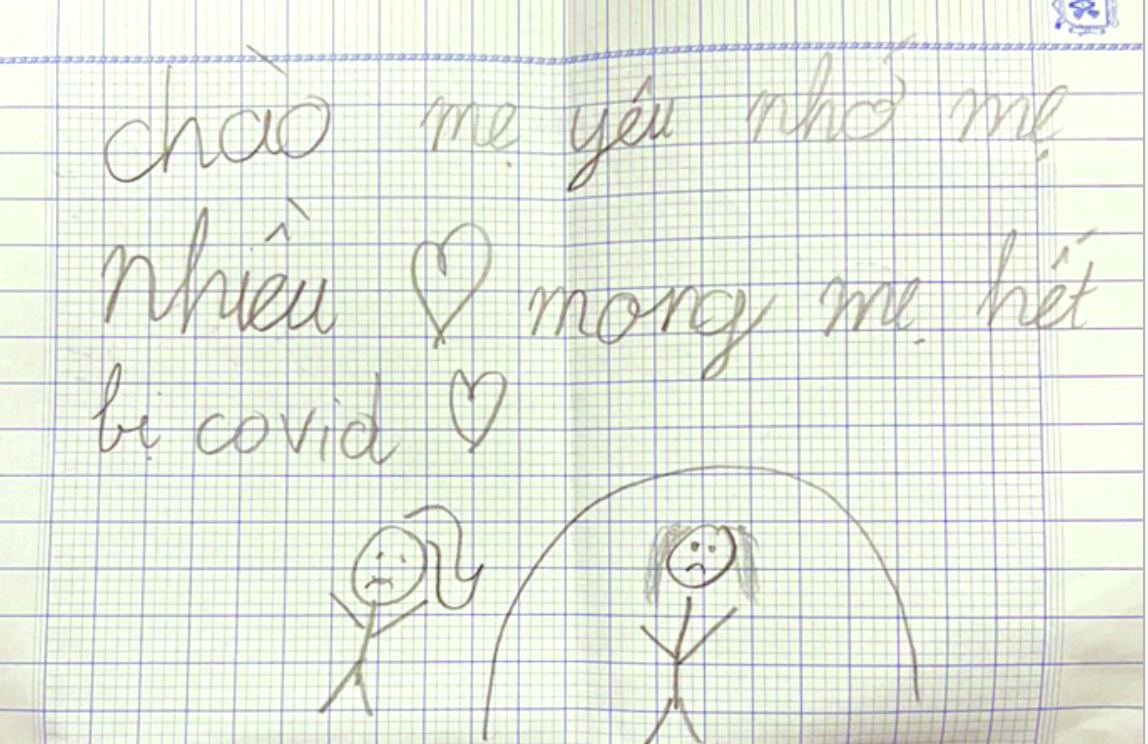 chào mẹ yêu nhớ mẹ
nhiều ♡ mong mẹ hết
bị covid ♡